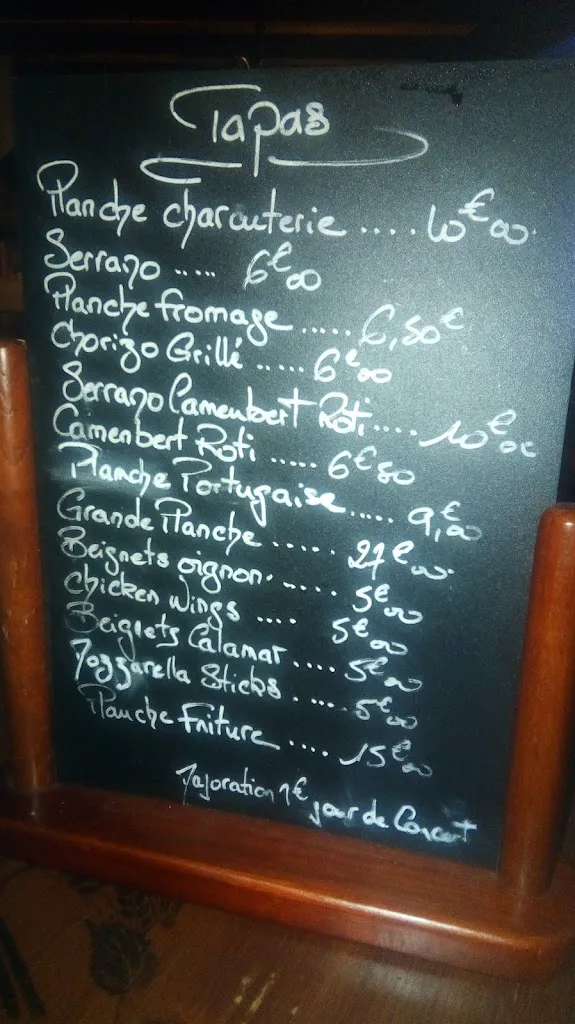 Tapas
Planche charcuterie .... 10€00
Serrano ..... 6€00
Planche fromage ..... 6,50€
Chorizo Grillé ..... 6€00
Serrano Camenbert Roti .... 10€00
Camenbert Roti ..... 6€50
Planche Portugaise ..... 9,€00
Grande Planche ..... 27€00
Beignets oignon ..... 5€00
chicken wings .... 5€00
Beignets Calamar .... 5€00
Mozzarella Sticks .... 5€00
Planche Friture .... 15€00
Majoration 1€ jour de Concert